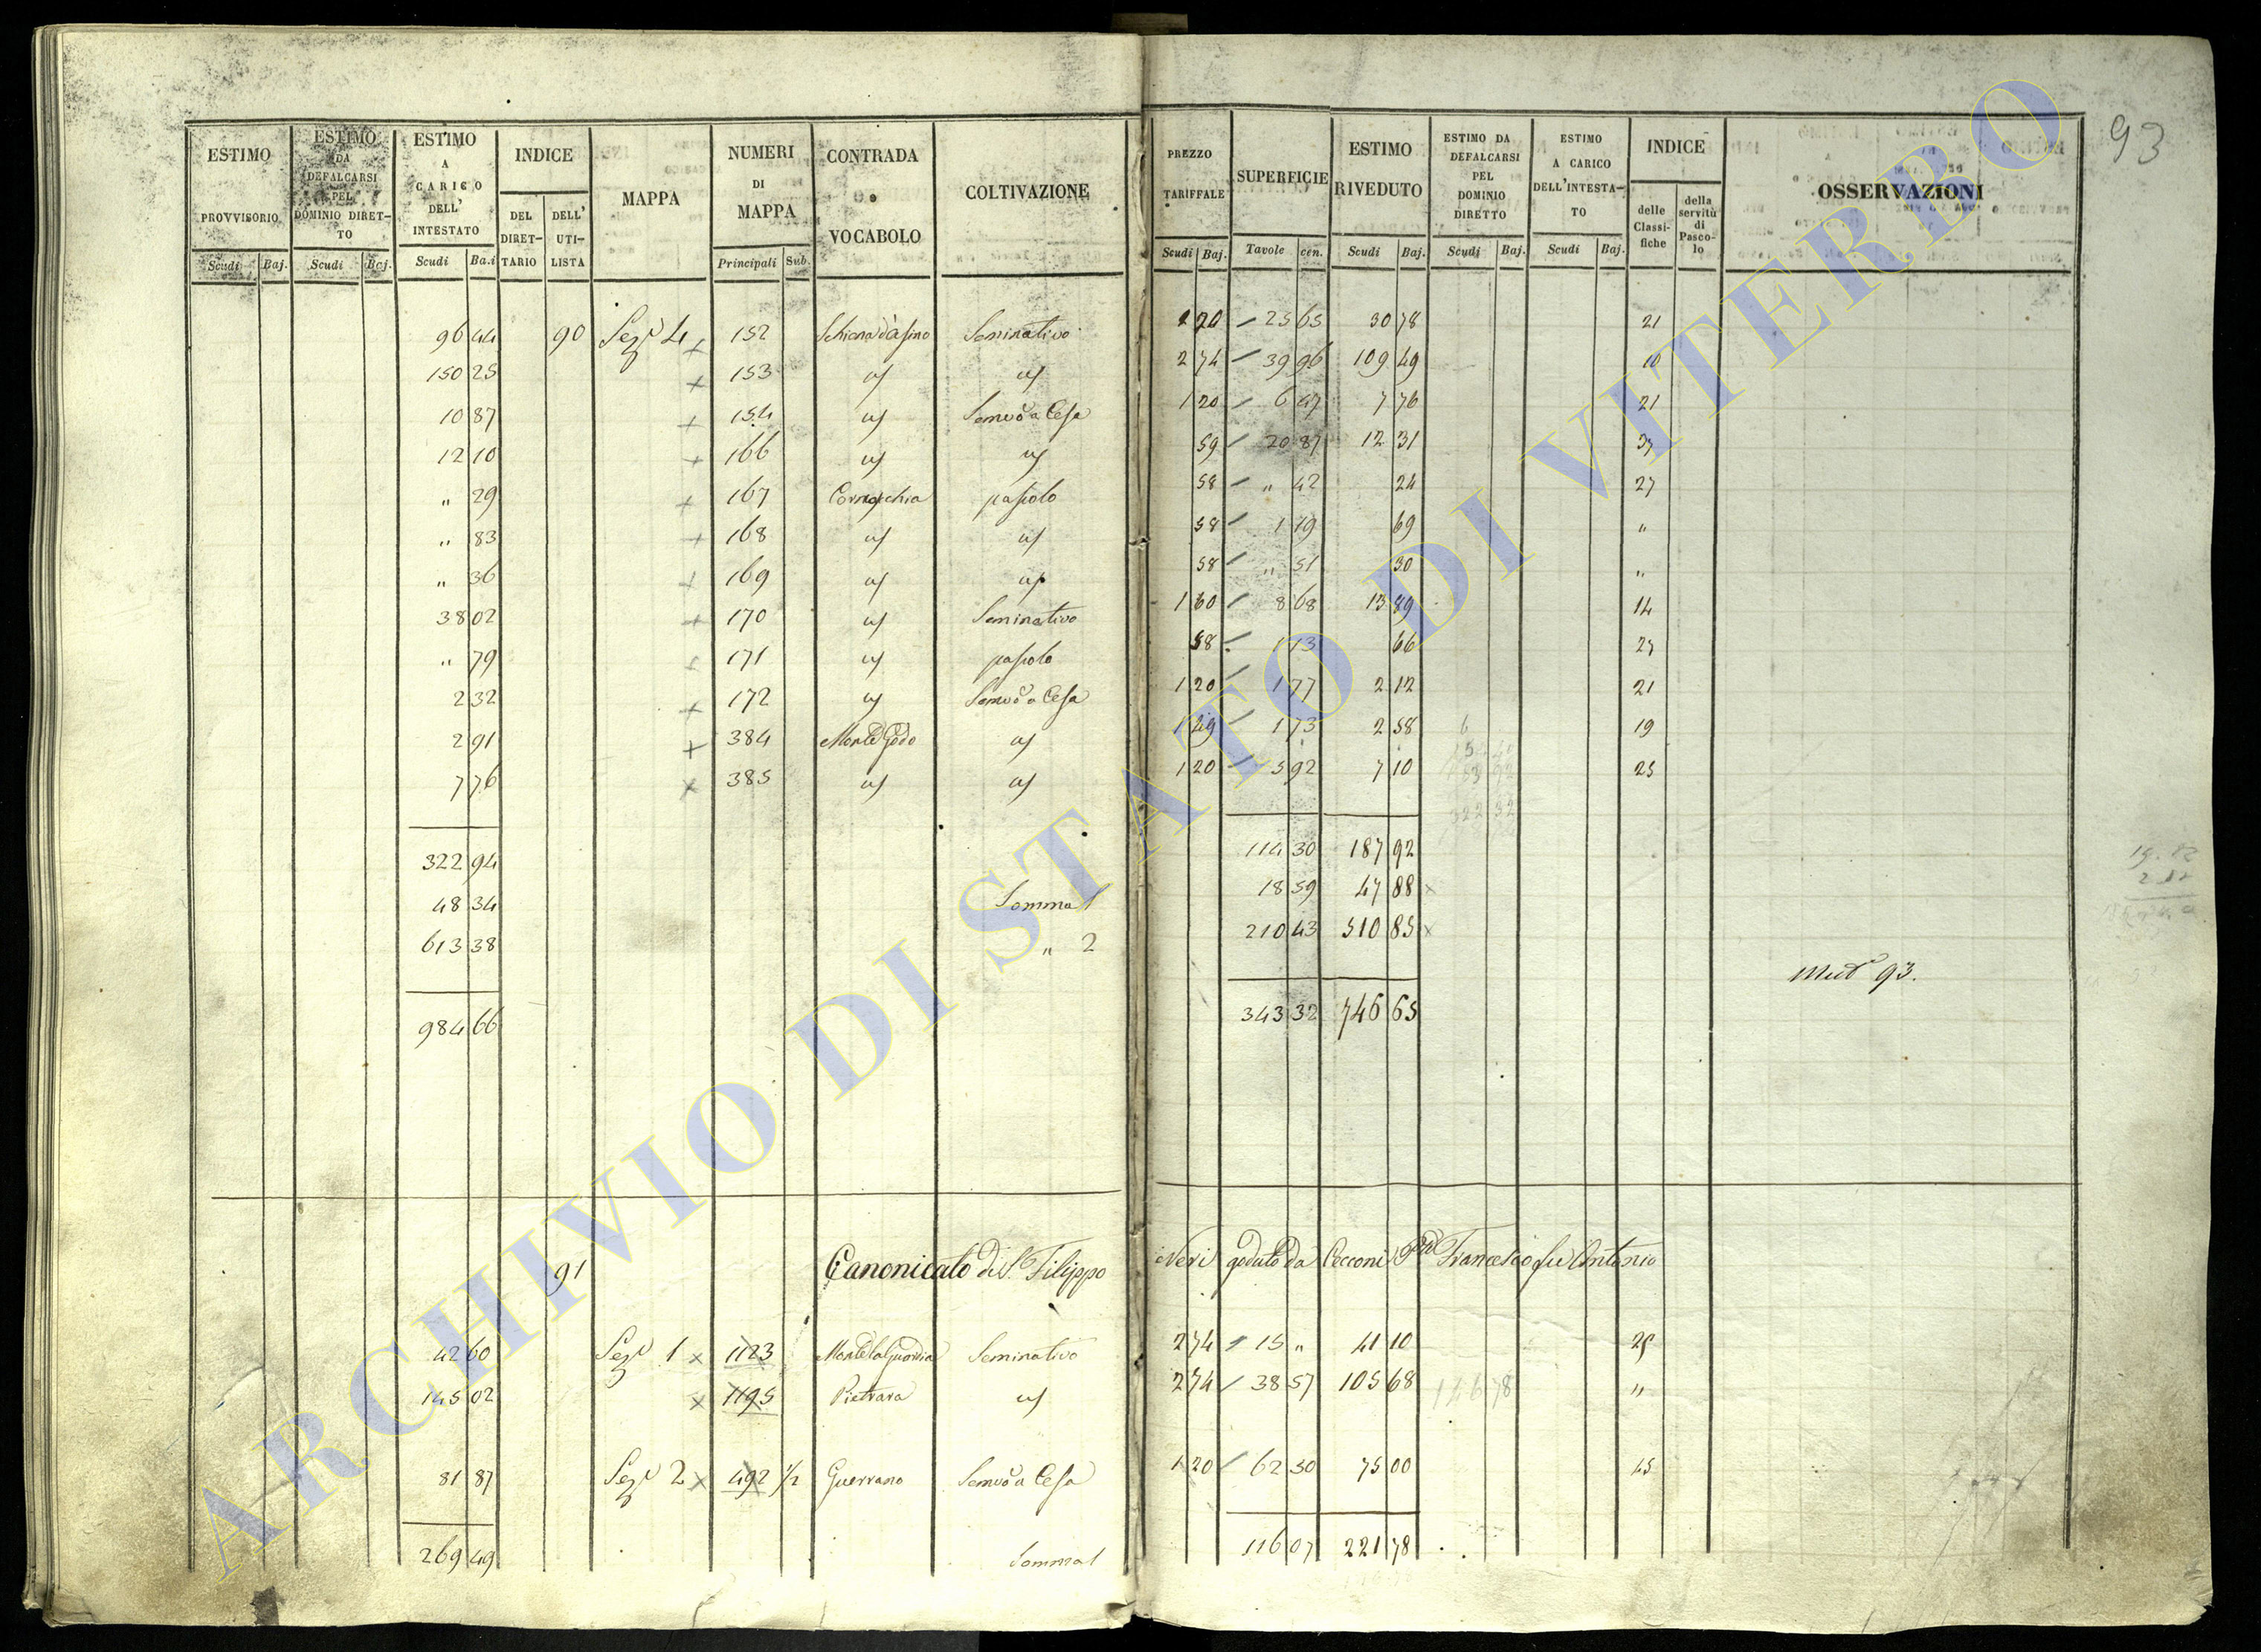 93
ESTIMO PROVVISORIO | ESTIMO DA DEFALCARSI PEL DOMINIO DIRETTO | ESTIMO A CARICO DELL' INTESTATO | INDICE DEL DIRETTARIO | DELL' UTILISTA | MAPPA | NUMERI DI MAPPA | CONTRADA o VOCABOLO | COLTIVAZIONE | PREZZO TARIFFALE | SUPERFICIE | ESTIMO RIVEDUTO | ESTIMO DA DEFALCARSI PEL DOMINIO DIRETTO | ESTIMO A CARICO DELL'INTESTATO | INDICE delle Classifiche | della servitù di Pascolo | OSSERVAZIONI
Scudi Baj. | Scudi Baj. | Scudi Baj. | Principali Sub. | Scudi Baj. | Tavole cen. | Scudi Baj. | Scudi Baj. | Scudi Baj.
96 44 | 90 | Sezᵉ 4 | 152 | Schiena d'asino | Seminativo | 1 20 | 25 65 | 30 78 | 21
150 25 | 153 | " | " | 2 74 | 39 96 | 109 49 | 10
10 87 | 154 | " | Semvo a Cesa | 1 20 | 6 47 | 7 76 | 21
12 10 | 166 | " | " | 59 | 20 87 | 12 31 | 37
" 29 | 167 | Cornacchia | pascolo | 58 | " 42 | 24 | 27
" 83 | 168 | " | " | 58 | 1 19 | 69 | "
" 36 | 169 | " | " | 58 | " 51 | 30 | "
38 02 | 170 | " | Seminativo | 1 60 | 8 68 | 13 89 | 14
" 79 | 171 | " | pascolo | 58 | 1 13 | 66 | 27
2 32 | 172 | " | Semvo a Cesa | 1 20 | 1 77 | 2 12 | 21
2 91 | 384 | Monte Godo | " | 1 49 | 1 73 | 2 58 | 19
7 76 | 385 | " | " | 1 20 | 5 92 | 7 10 | 25
322 94 | 114 30 | 187 92
48 34 | Somma 1 | 18 59 | 47 88
613 38 | " 2 | 210 43 | 510 85
984 66 | 343 32 | 746 65 | Mutᵃ 93.
91 Canonicato di S. Filippo Neri goduto da Cecconi Francesco fu Antonio
42 60 | Sezᵉ 1 | 1123 | Monte la Guardia | Seminativo | 2 74 | 15 " | 41 10 | 25
145 02 | 1195 | Pietrara | " | 2 74 | 38 57 | 105 68 | 146 78 | "
81 87 | Sezᵉ 2 | 492 1/2 | Guerrano | Semvo a Cesa | 1 20 | 62 50 | 75 00 | 45
269 49 | Somma 1 | 116 07 | 221 78
ARCHIVIO DI STATO DI VITERBO